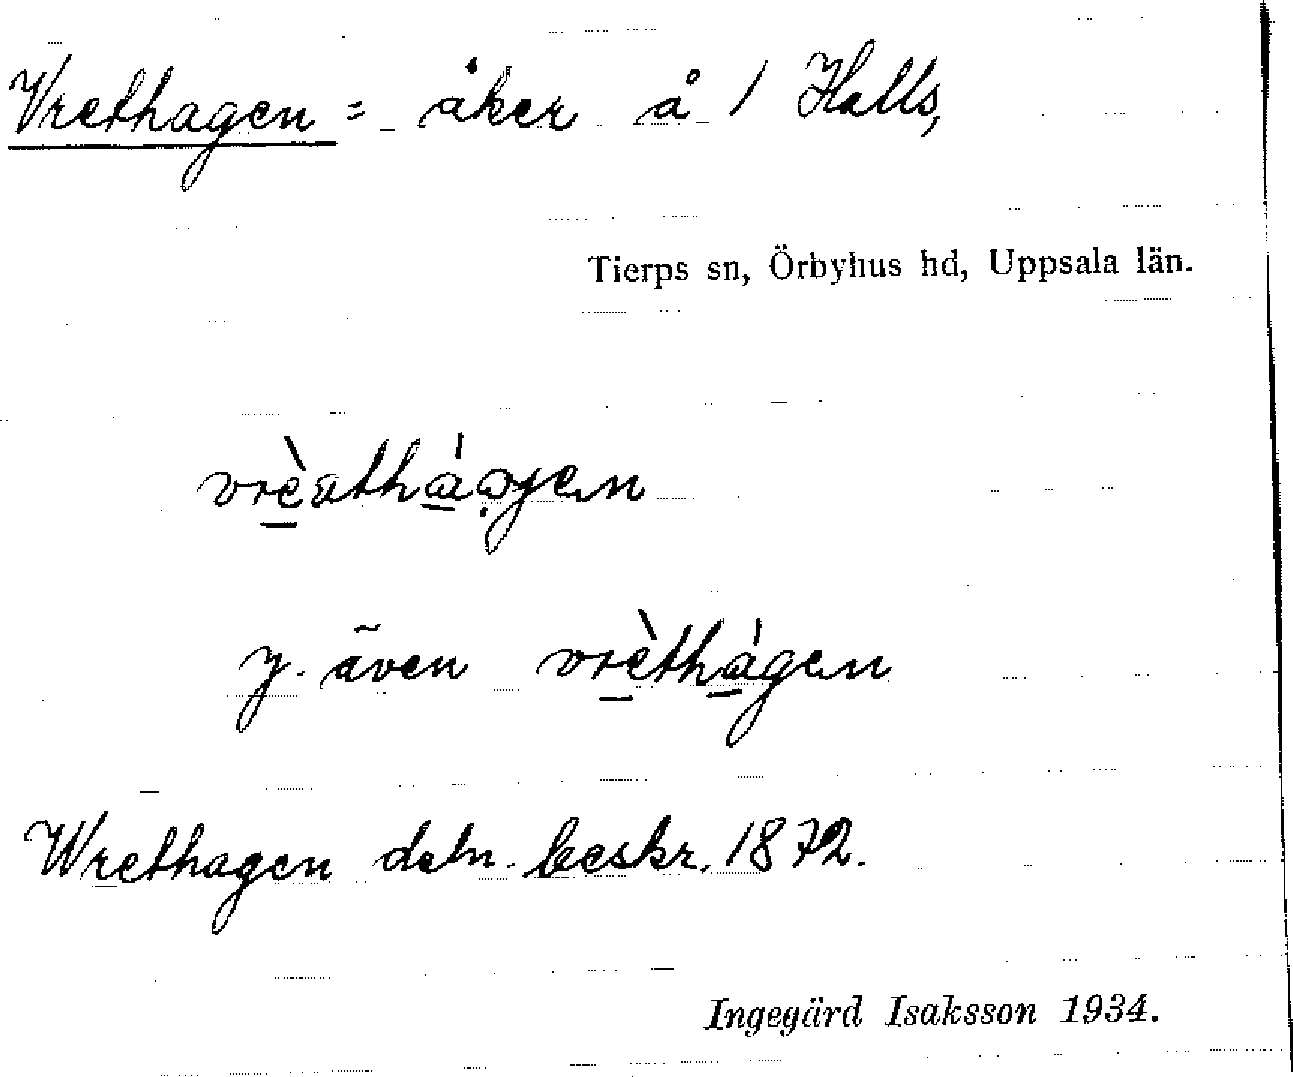 Vrethagen = åker å 1 Halls,
Tierps sn, Örbyhus hd, Uppsala län.
y. även vrèthágen
Wrethagen deln. beskr. 1872.
Ingegärd Isaksson 1934.